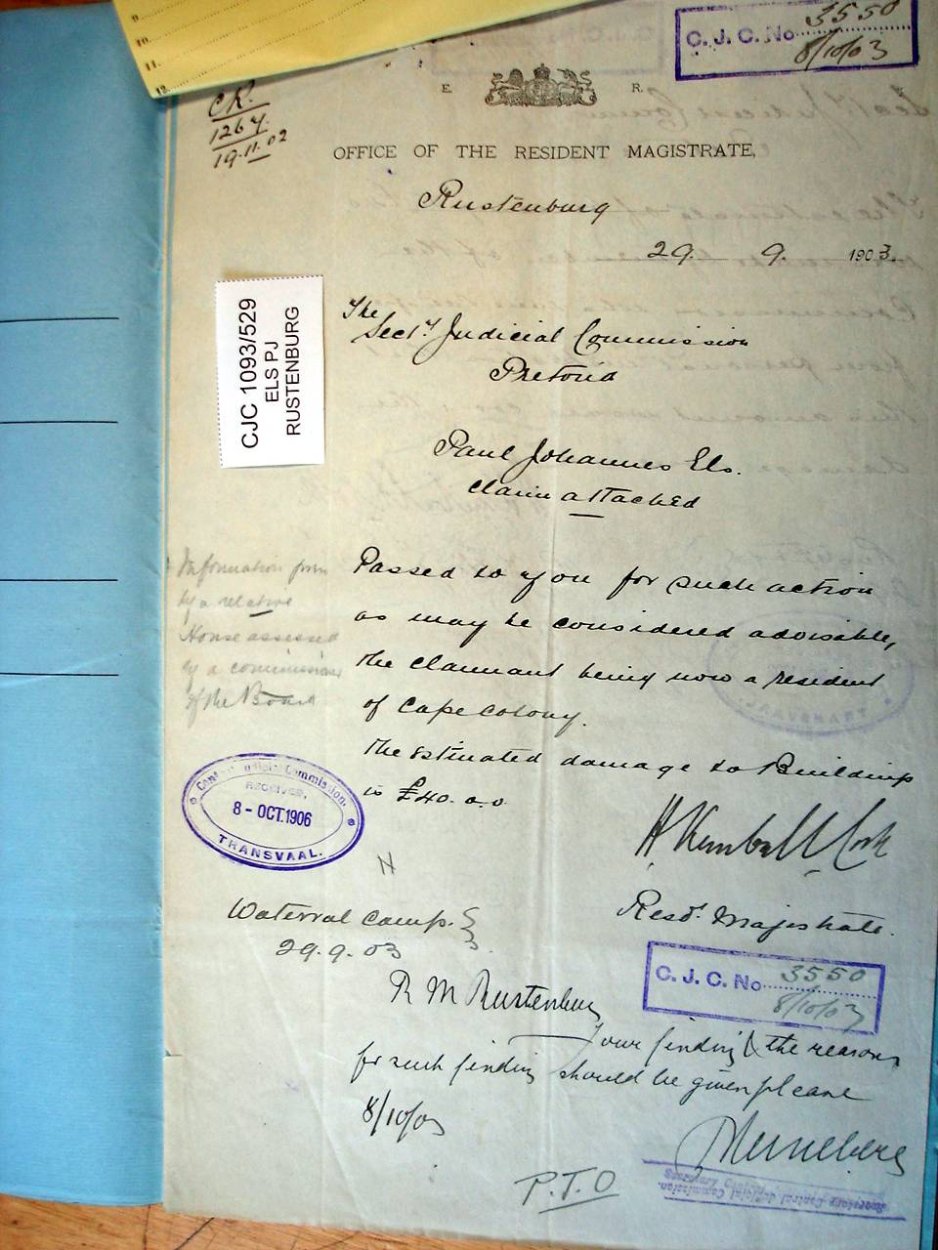 9.
10.
11.
12.
C. J. C. No 3550
8/10/03
C.R.
1267
19.11.02
E. R.
OFFICE OF THE RESIDENT MAGISTRATE,
Rustenburg
29. 9. 1903.
CJC 1093/529
ELS PJ
RUSTENBURG
The
Secty Judicial Commission
Pretoria
Paul Johannes Els.
Claim attached
Information from
by a relative
House assessed
by a commission
of the Board
Passed to you for such action
as may be considered advisable,
the claimant being now a resident
of Cape Colony.
The estimated damage to Buildings
is £40.0.0.
Central Judicial Commission.
RECEIVED,
8 - OCT. 1906
TRANSVAAL.
H
H Kemball Cook
Resdt. Magistrate.
Waterval Camp.
29.9.03
C. J. C. No 3550
8/10/03
R M Rustenburg
Your finding & the reasons
for such finding should be given please
8/10/03
Secretary Central Judicial Commission.
P.T.O